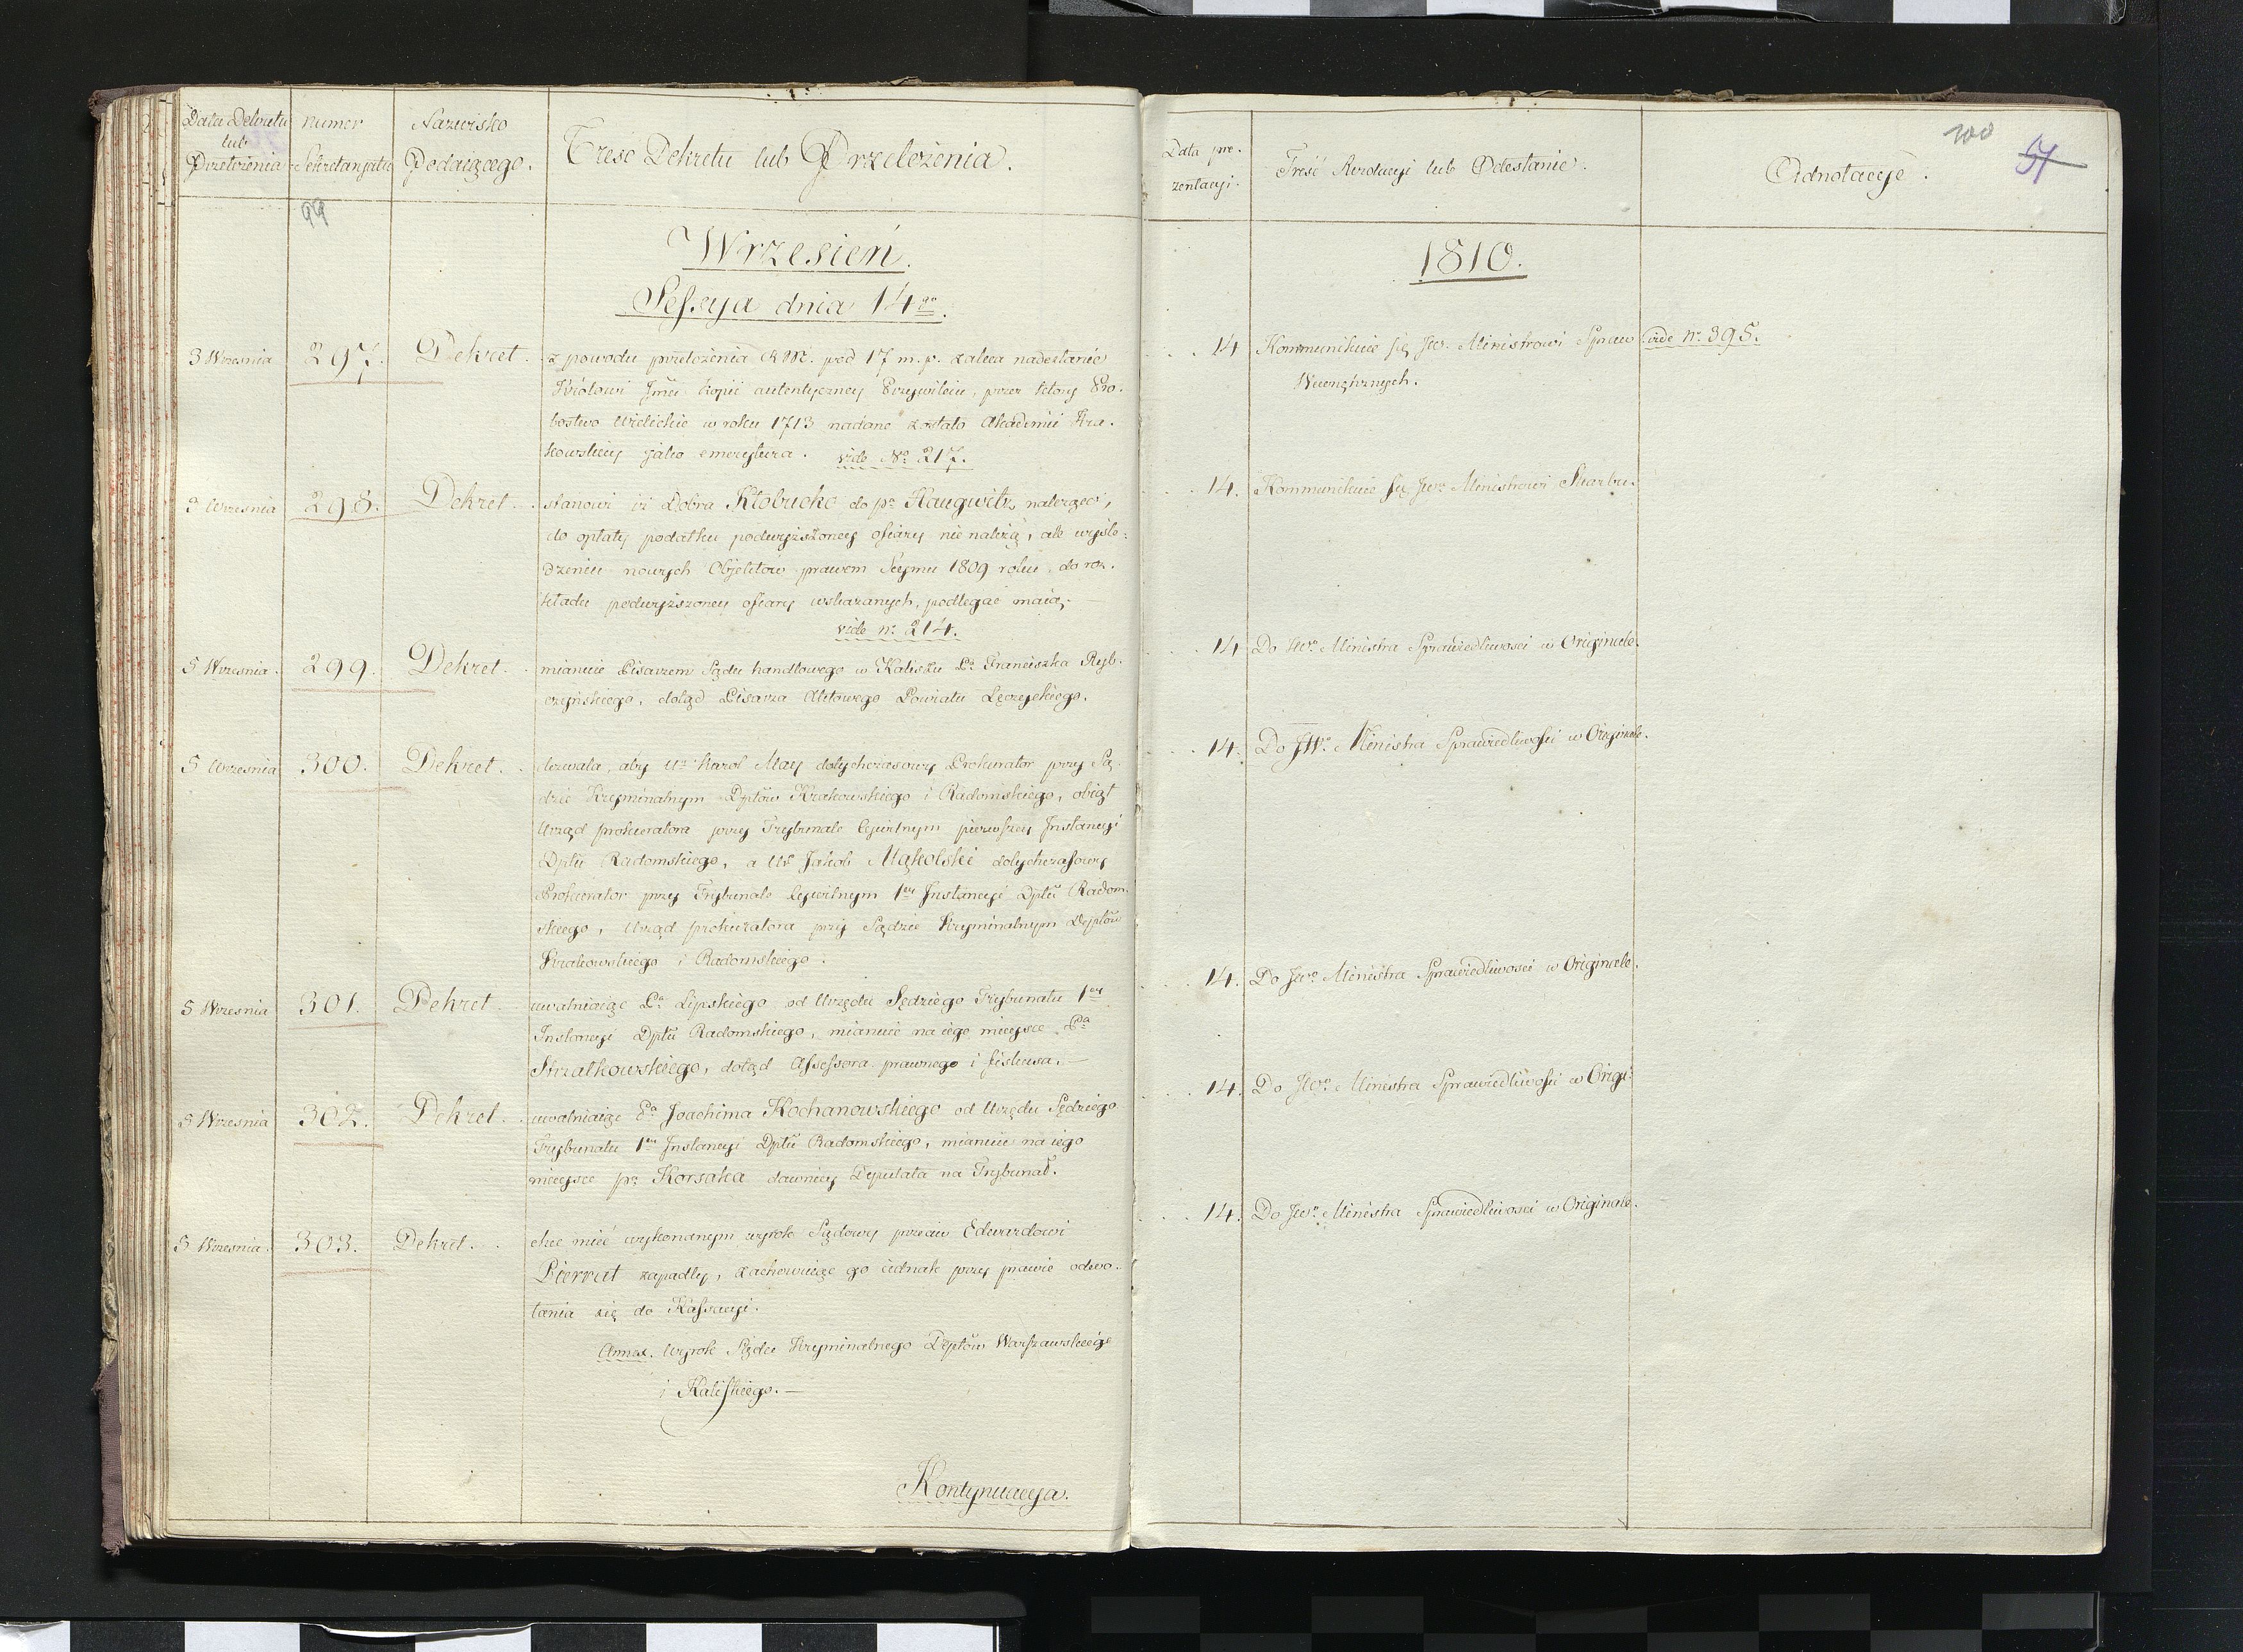 Data Dekretu
lub
Przełożenia
numer
Sekretaryatu
Nazwisko
Podaiącego.
Treść Dekretu lub Przełożenia.
99
Wrzesień.
Sessya dnia 14go.
3 Wrzesnia 297. Dekret. z powodu przełożenia R M. pod 17 m. p. zaleca nadesłanie
Królowi Jmci kopii autentyczney Przywileiu, przez który Pro-
bostwo Wielickie w roku 1713 nadane zostało Akademii Kra-
kowskiey jako emerytura. vide No 217.
3 Wrzesnia 298. Dekret. stanowi iż Dobra Kłobucko do pa Haugwitz należące,
do opłaty podatku podwyższoney ofiary nie należą, ale wyśle-
dzeniu nowych Objektów prawem Seymu 1809 roku do roz-
kładu podwyższoney ofiary wskazanych, podlegać maią.
vide nr 214.
5 Wrzesnia. 299. Dekret. mianuie Pisarzem Sądu handlowego w Kaliszu Pa Franciszka Ryb-
czyńskiego, dotąd Pisarza Aktowego Powiatu Łęczyckiego.
5 Wrzesnia 300. Dekret. dozwala, aby Ur Karol May dotychczasowy Prokurator przy Są-
dzie Kryminalnym Dptów Krakowskiego i Radomskiego, obiął
Urząd prokuratora przy Trybunale Cywilnym pierwszey Instancyi
Dptu Radomskiego, a Ur Jakob Mąkolski dotychczasowy
Prokurator przy Trybunale Cywilnym 1ey Instancyi Dptu Radom-
skiego, Urząd prokuratora przy Sądzie Kryminalnym Dptów
Krakowskiego i Radomskiego.
5 Wrzesnia 301. Dekret. uwalniaiąc Pa Lipskiego od Urzędu Sędziego Trybunału 1ey
Instancyi Dptu Radomskiego, mianuie na iego mieysce Pa
Strzałkowskiego, dotąd Assessora prawnego i fiskusa.
5 Wrzesnia 302. Dekret. uwalniaiąc Pa Joachima Kochanowskiego od Urzędu Sędziego
Trybunału 1ey Instancyi Dptu Radomskiego, mianuie na iego
mieysce pa Korsaka dawniey Deputata na Trybunał.
5 Wrzesnia. 303. Dekret. chce mieć wykonanym wyrok Sądowy przeciw Edwardowi
Pierrat zapadły, zachowuiąc go iednak przy prawie odwo-
łania się do Kassacyi.
Annex. Wyrok Sądu Kryminalnego Dptów Warszawskiego
i Kaliskiego.
Kontynuacya.
Data pre-
zentacyi.
Treść Rezolucyi lub Odesłanie.
Adnotacye.
100
57
1810.
14 Kommunikuie się Jwu Ministrowi Spraw vide nr 395.
Wewnętrznych.
14. Kommunikuie się Jwu Ministrowi Skarbu.
14 Do Jwo Ministra Sprawiedliwosci w Originale.
14. Do JWo Ministra Sprawiedliwości w Originale.
14. Do Jwo Ministra Sprawiedliwosci w Originale.
14. Do Jwo Ministra Sprawiedliwości w Origi-
14. Do Jwo Ministra Sprawiedliwosci w Originale.